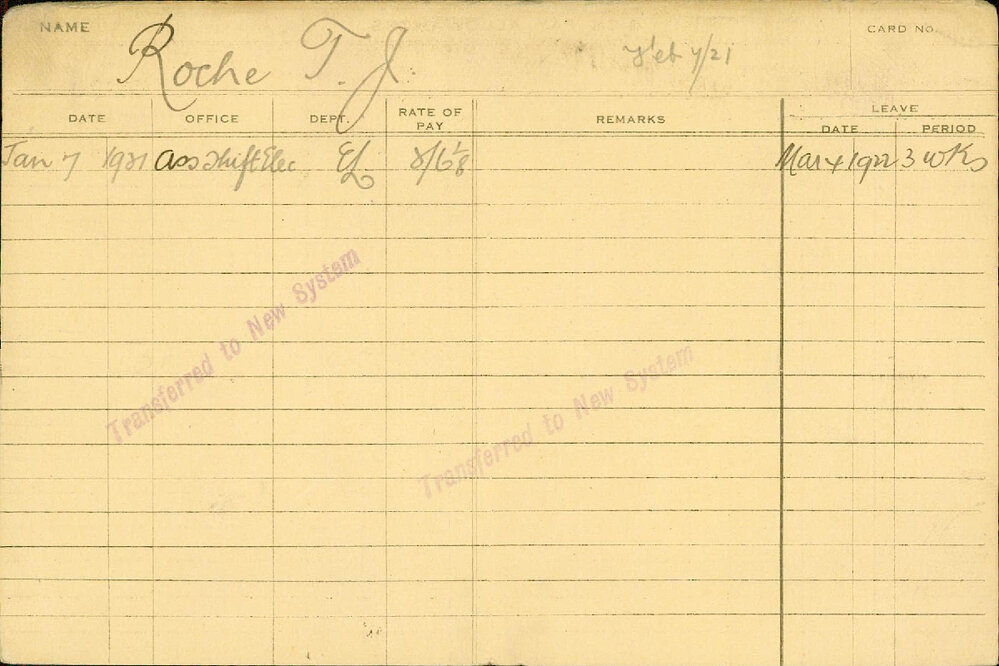 NAME
CARD NO.
Roche T. J. Feb 7/21
LEAVE
DATE OFFICE DEPT. RATE OF PAY REMARKS DATE PERIOD
Jan 7 1921 Ass Shift Elec EL Mar 4 1922 3 wks
Transferred to New System
Transferred to New System